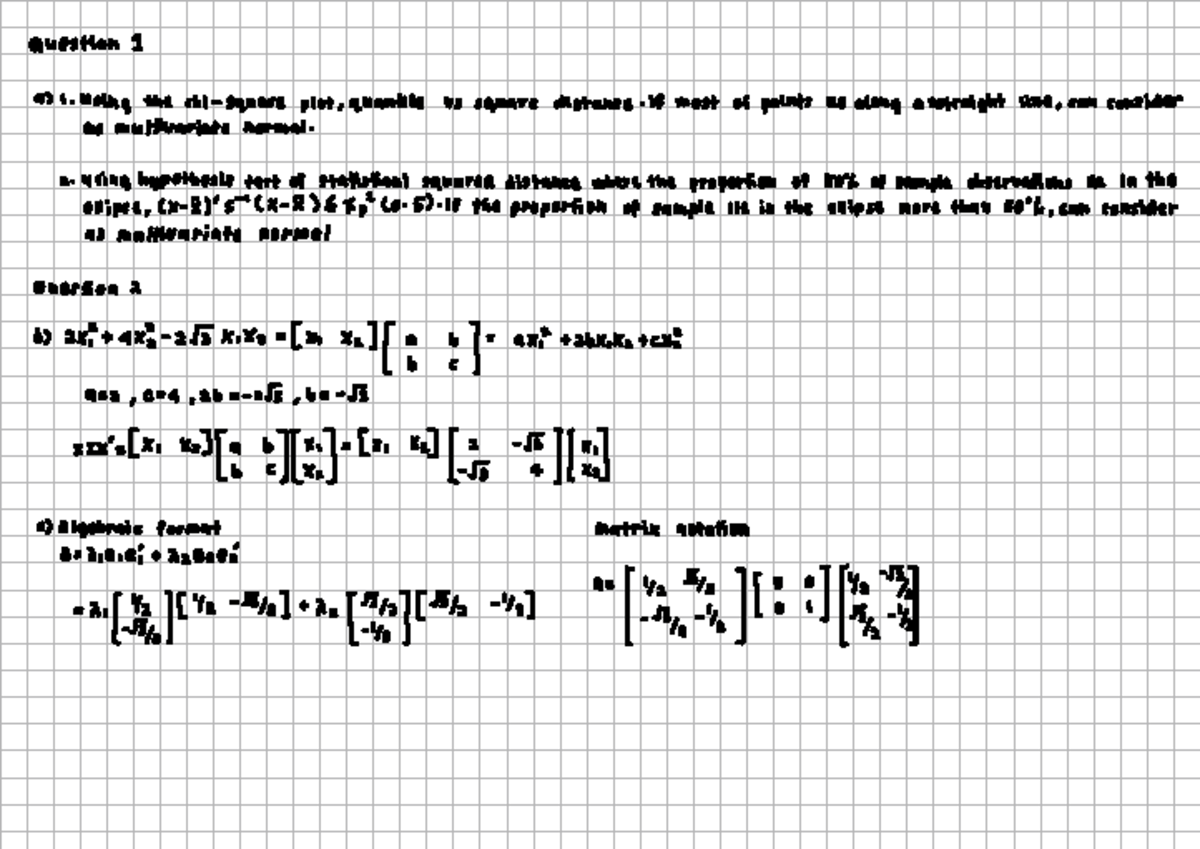 Question 1
a) 1. Using the chi-square plot, quantile vs square distance. If most of points as along a straight line, can consider
as multivariate normal.
2. using hypothesis test of statistical squared distance where the proportion of 50% of sample observations lie in the
elipse, (x-x̄)'s⁻¹(x-x̄) ≤ χp²(0.5). If the proportion of sample lie in the elipse more than 50%, can consider
as multivariate normal
Question 2
b) 2x₁² + 4x₂² - 2√3 x₁x₂ = [x₁ x₂] [a b; b c] = ax₁² + 2bx₁x₂ + cx₂²
a=2, c=4, 2b=-2√3, b=-√3
[x₁ x₂] [a b; b c] [x₁; x₂] = [x₁ x₂] [2 -√3; -√3 4] [x₁; x₂]
c) Algebraic format
A = λ₁e₁e₁' + λ₂e₂e₂'
= λ₁ [1/2; -√3/2] [1/2 -√3/2] + λ₂ [√3/2; -1/2] [√3/2 -1/2]
matrix notation
[1/2 √3/2; -√3/2 -1/2] [0; 0 1] [1/2 -√3/2; √3/2 -1/2]